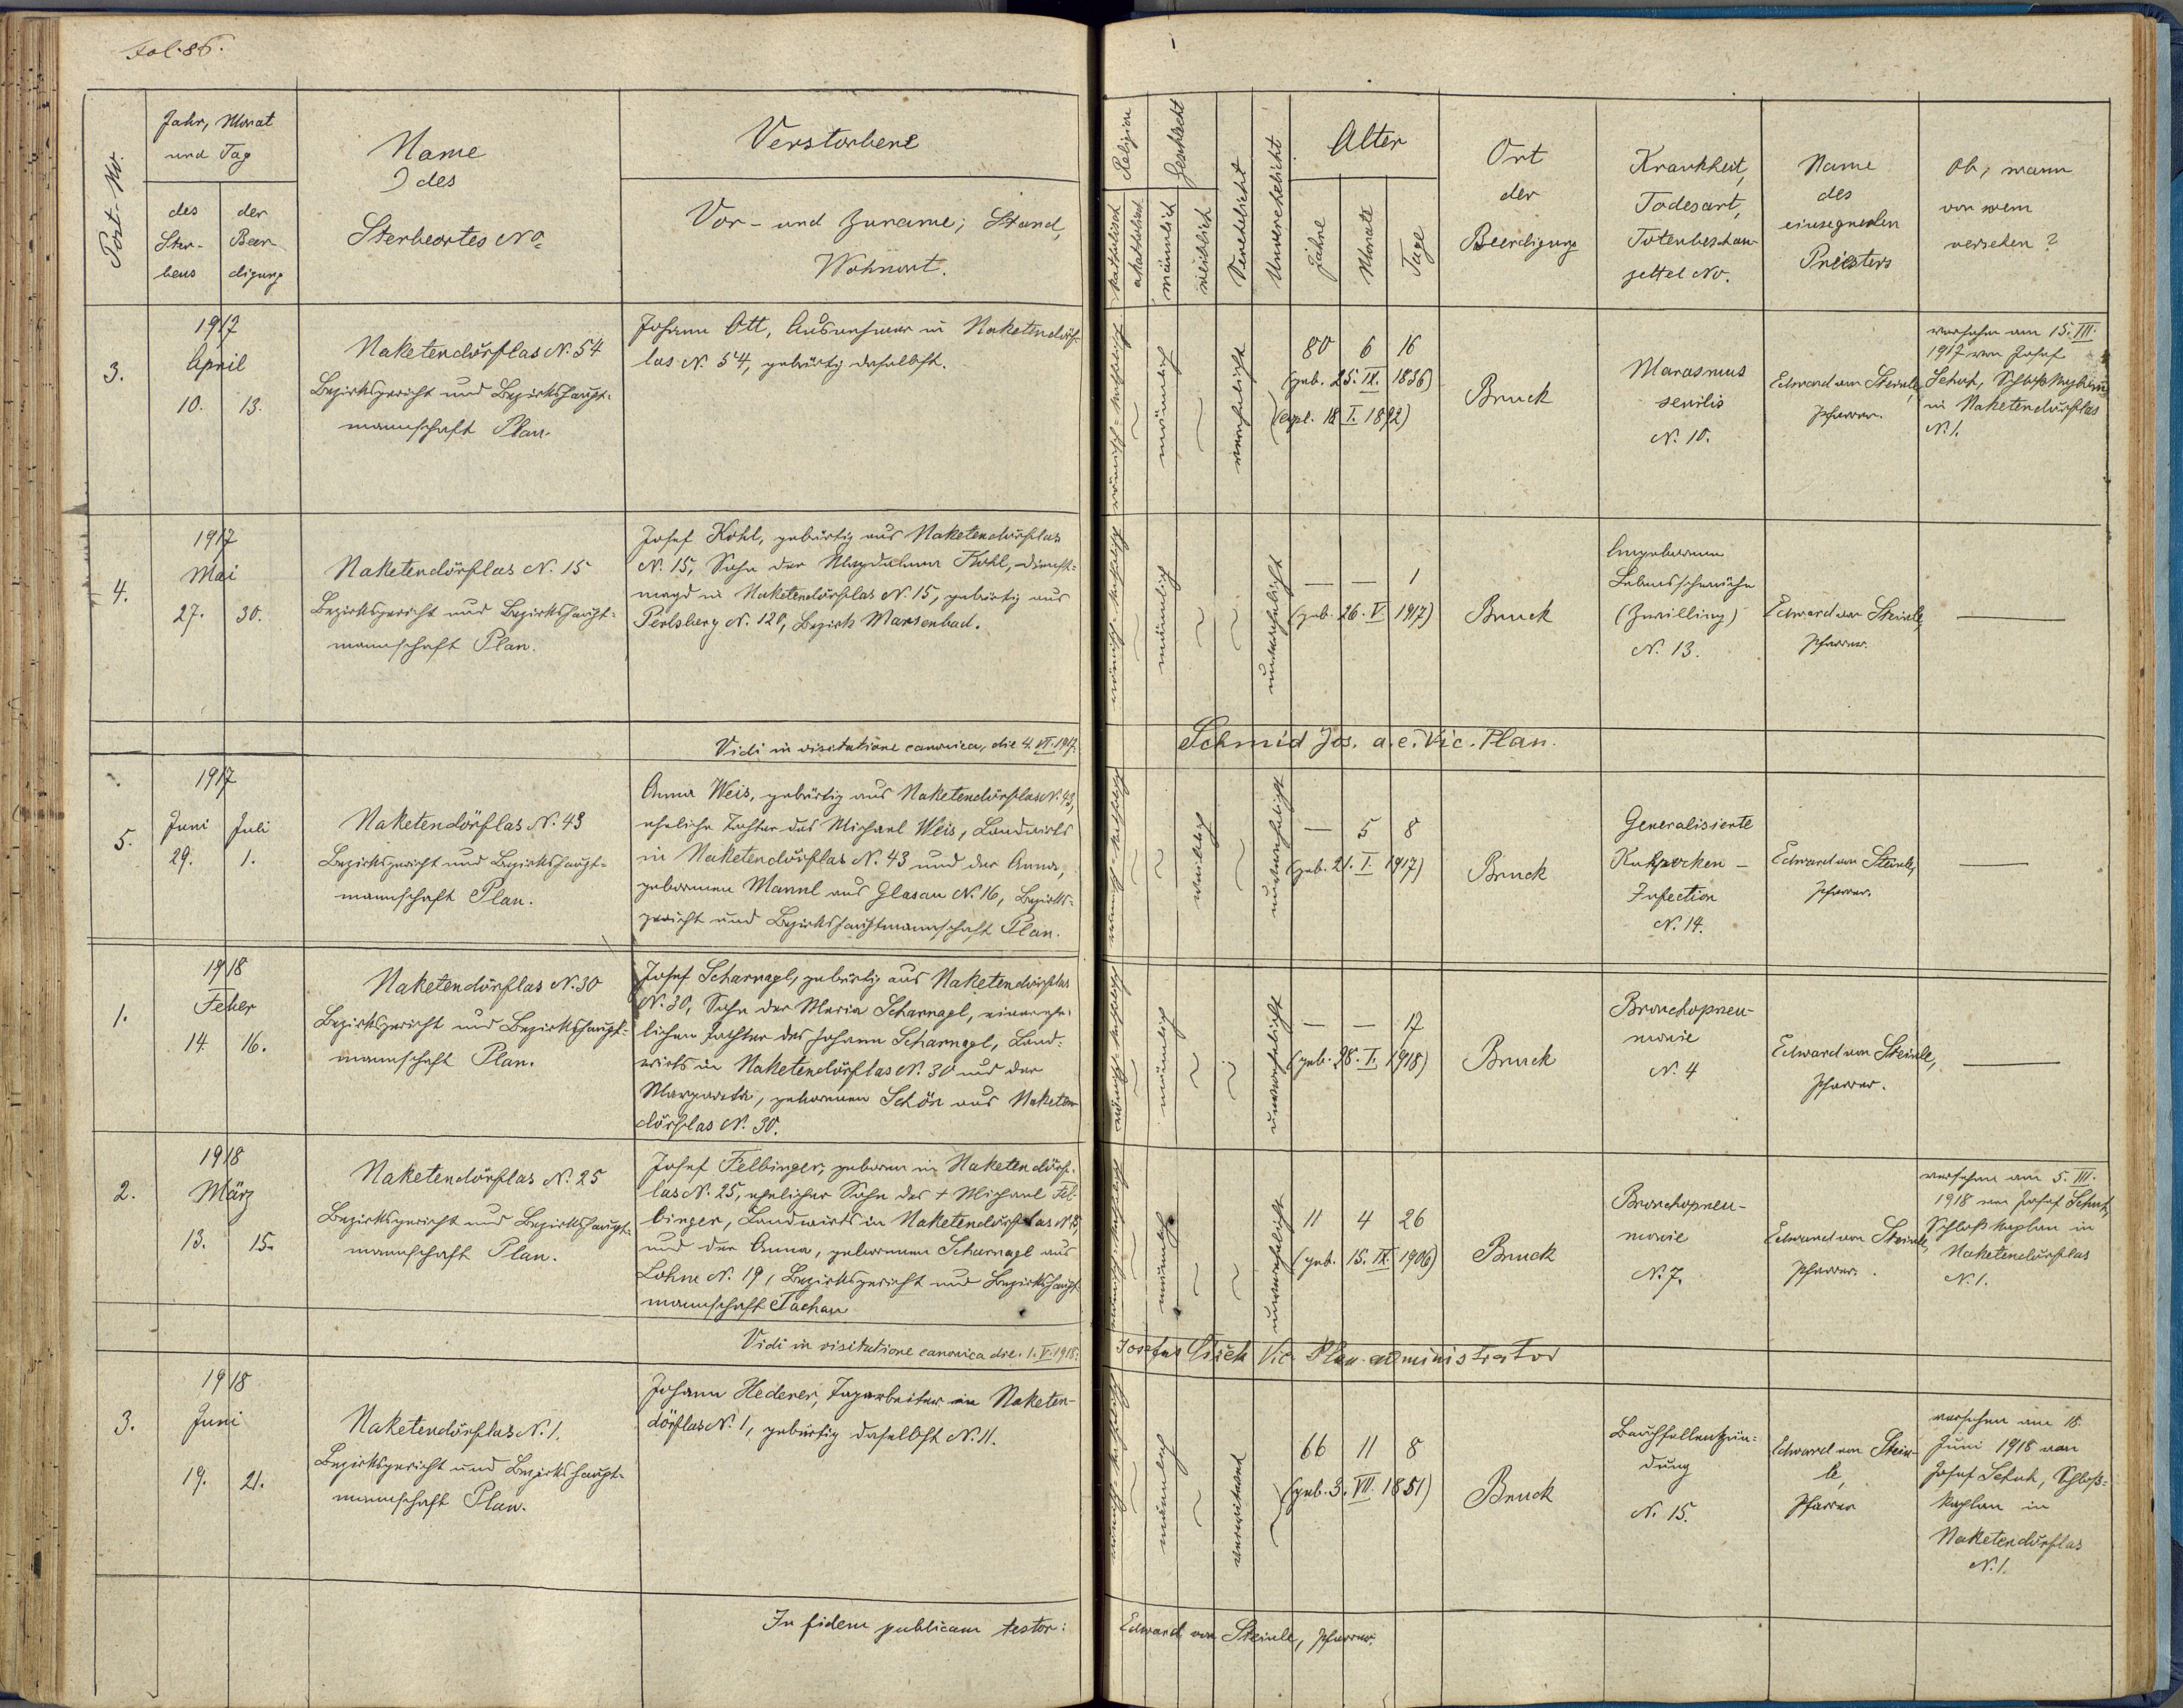 Fol. 86.
Post-No.
Jahr, Monat
und Tag
des
Ster-
bens
der
Beer-
digung
Name
des
Sterbeortes No
Verstorbene
Vor- und Zuname; Stand,
Wohnort.
Religion
katholisch
akatholisch
Geschlecht
männlich
weiblich
Verehelicht
Unverehelicht
Alter
Jahre
Monate
Tage
Ort
der
Beerdigung
Krankheit,
Todesart,
Totenbeschau-
zettel No.
Name
des
einsegnenden
Priesters
Ob, wann
von wem
versehen?
3.
1917
April
10. 13.
Naketendörflas N. 54
Bezirksgericht und Bezirkshaupt-
mannschaft Plan.
Johann Ott, Ausnehmer in Naketendörf-
las N. 54, gebürtig daselbst.
römisch-katholisch
männlich
verehelicht
80 6 16
(geb. 25. IX. 1836)
(copl. 18 I. 1892)
Bruck
Marasmus
senilis
N. 10.
Edward von Steinle,
Pfarrer.
versehen am 15. III.
1917 von Josef
Schuh, Schloßkaplan
in Naketendörflas
N. 1.
4.
1917
Mai
27. 30.
Naketendörflas N. 15
Bezirksgericht und Bezirkshaupt-
mannschaft Plan.
Josef Kohl, gebürtig aus Naketendörflas
N. 15, Sohn der Magdalena Kohl, Dienst-
magd in Naketendörflas N. 15, gebürtig aus
Perlsberg N. 120, Bezirk Marienbad.
römisch-katholisch
männlich
unverehelicht
— — 1
(geb. 26. V. 1917)
Bruck
Angeborene
Lebensschwäche
(Zwilling)
N. 13.
Edward von Steinle,
Pfarrer.
—
Vidi in visitatione canonica, die 4. VII. 1917.
Schmid Jos. a. e. Vic. Plan.
5.
1917
Juni Juli
29. 1.
Naketendörflas N. 43
Bezirksgericht und Bezirkshaupt-
mannschaft Plan.
Anna Weis, gebürtig aus Naketendörflas N. 43,
eheliche Tochter des Michael Weis, Landwirts
in Naketendörflas N. 43 und der Anna,
geborenen Mannl aus Glasau N. 16, Bezirks-
gericht und Bezirkshauptmannschaft Plan.
römisch-katholisch
weiblich
unverehelicht
— 5 8
(geb. 21. I. 1917)
Bruck
Generalisierte
Kuhpocken-
Infection
N. 14.
Edward von Steinle,
Pfarrer.
—
1.
1918
Feber
14. 16.
Naketendörflas N. 30
Bezirksgericht und Bezirkshaupt-
mannschaft Plan.
Josef Scharnagl, gebürtig aus Naketendörflas
N. 30, Sohn der Maria Scharnagl, einer ehe-
lichen Tochter des Johann Scharnagl, Land-
wirts in Naketendörflas N. 30 und der
Margareta, geborenen Schön aus Naketen-
dörflas N. 30.
römisch-katholisch
männlich
unverehelicht
— — 17
(geb. 28. I. 1918)
Bruck
Bronchopneu-
monie
N. 4
Edward von Steinle,
Pfarrer.
—
2.
1918
März
13. 15.
Naketendörflas N. 25
Bezirksgericht und Bezirkshaupt-
mannschaft Plan.
Josef Felbinger, geboren in Naketendörf-
las N. 25, ehelicher Sohn des + Michael Fel-
binger, Landwirts in Naketendörflas N. 25
und der Anna, geborenen Scharnagl aus
Lohm N. 19, Bezirksgericht und Bezirkshaupt-
mannschaft Tachau
römisch-katholisch
männlich
unverehelicht
11 4 26
(geb. 15. IX. 1906)
Bruck
Bronchopneu-
monie
N. 7.
Edward von Steinle,
Pfarrer.
versehen am 5. III.
1918 von Josef Schuh,
Schloßkaplan in
Naketendörflas
N. 1.
Vidi in visitatione canonica die. 1. V. 1918.
Josefus Vic. Plan. administrator
3.
1918
Juni
19. 21.
Naketendörflas N. 1.
Bezirksgericht und Bezirkshaupt-
mannschaft Plan.
Johann Hederer, Tagarbeiter in Naketen-
dörflas N. 1, gebürtig daselbst N. 11.
römisch-katholisch
männlich
verwitwet
66 11 8
(geb. 3. VII. 1851)
Bruck
Bauchfellentzün-
dung
N. 15.
Edward von Stein-
le,
Pfarrer
versehen am 18.
Juni 1918 von
Josef Schuh, Schloß-
kaplan in
Naketendörflas
N. 1.
In fidem publicam testor:
Edward von Steinle, Pfarrer.